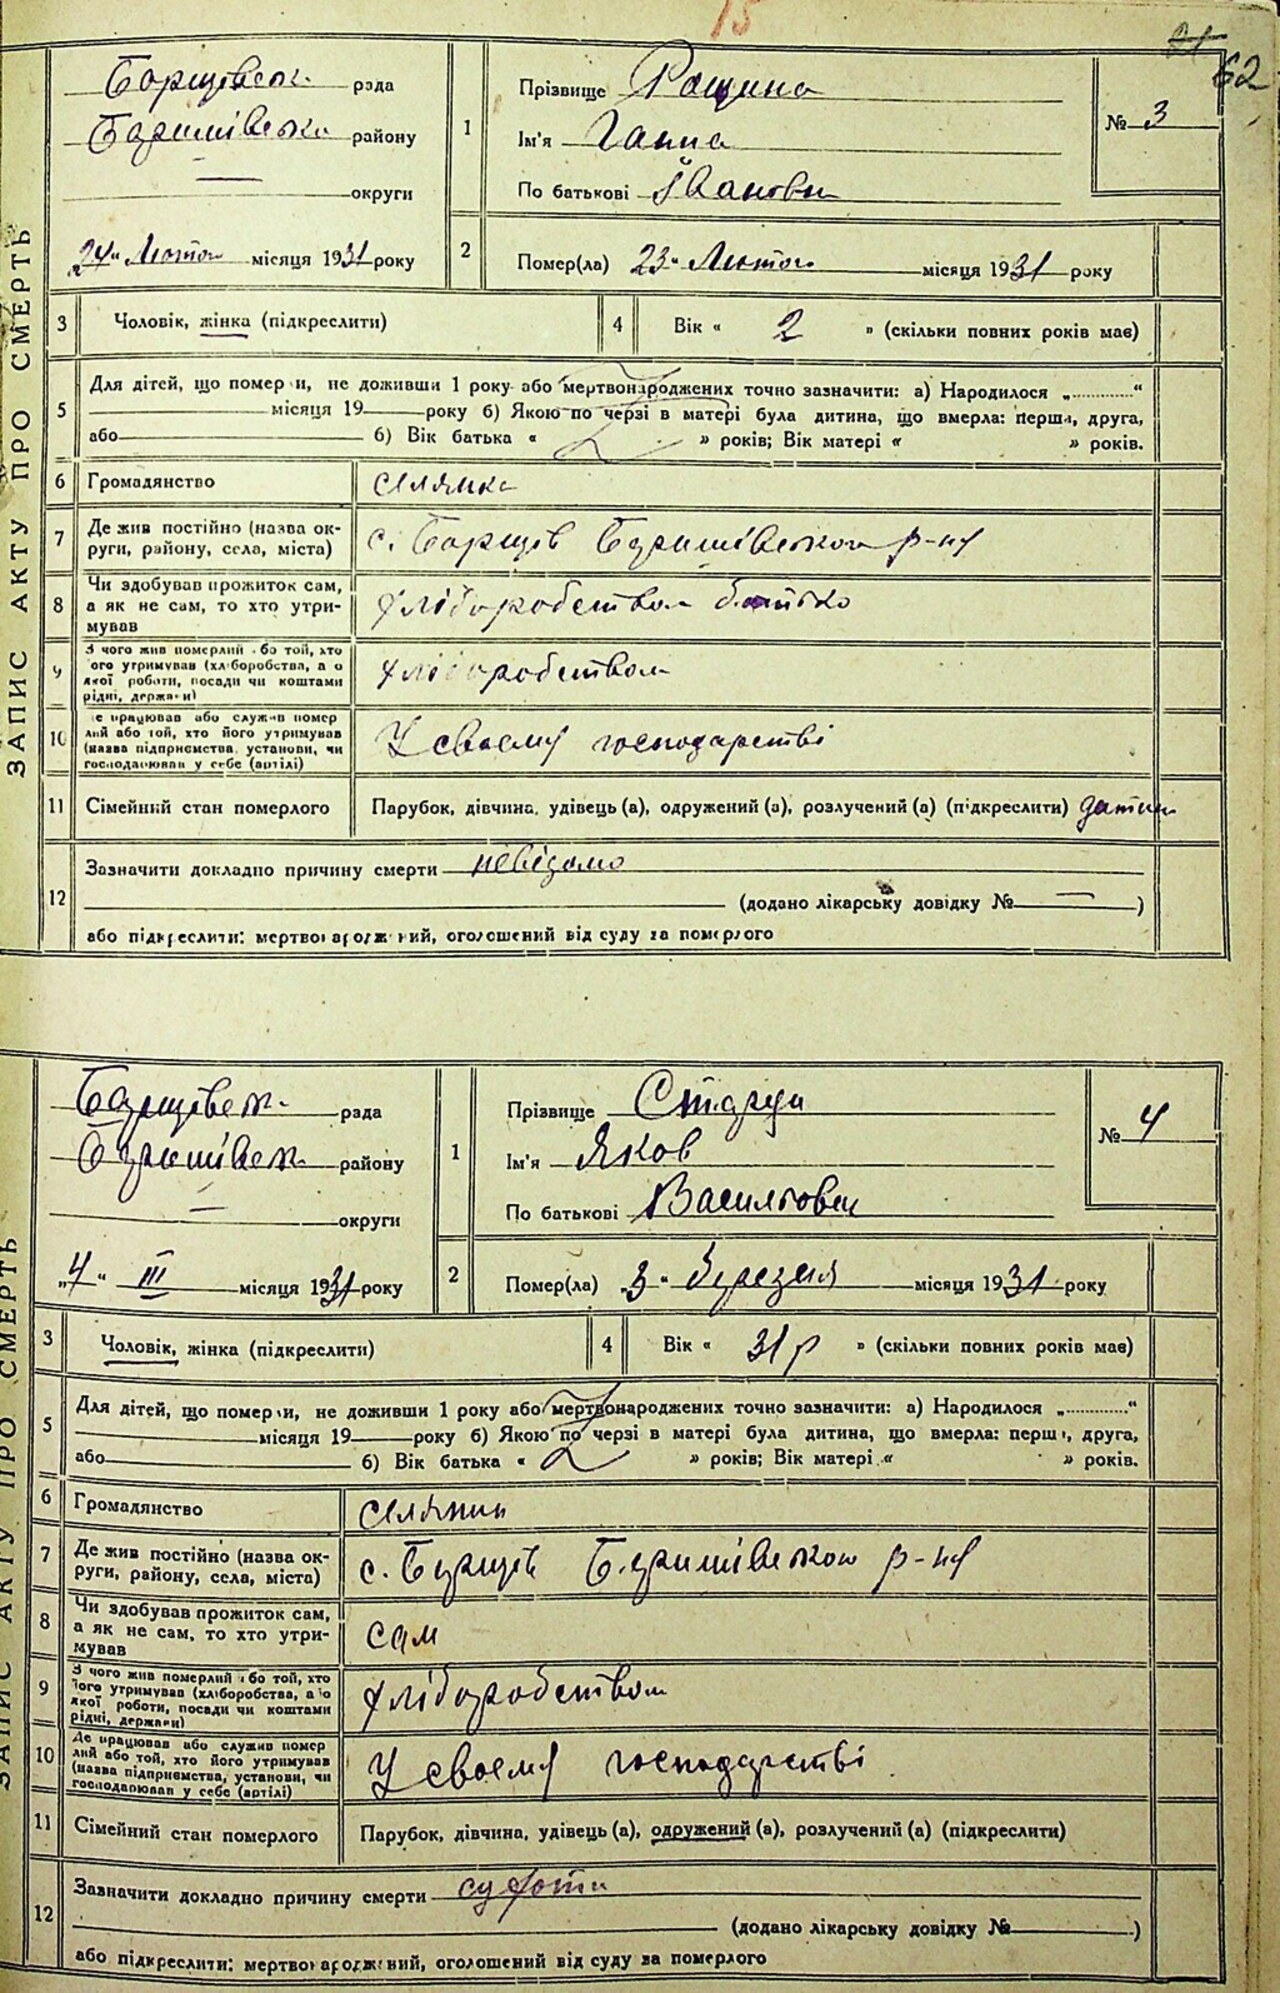 15
62
ЗАПИС АКТУ ПРО СМЕРТЬ
Борщівськ. рада
Баришівська району
— округи
24" Лютого місяця 1931 року
1
Прізвище Рощина
Ім'я Ганна
По батькові Івановн
№ 3
2
Помер(ла) 23" Лютого місяця 1931 року
3 Чоловік, жінка (підкреслити)
4 Вік « 2 » (скільки повних років має)
5 Для дітей, що померли, не доживши 1 року або мертвонароджених точно зазначити: а) Народилося „............“
місяця 19 року б) Якою по черзі в матері була дитина, що вмерла: перша, друга,
або б) Вік батька « » років; Вік матері « » років.
6 Громадянство селянка
7 Де жив постійно (назва ок-
руги, району, села, міста)
с. Борщів Баришівського р-ну
8 Чи здобував прожиток сам,
а як не сам, то хто утри-
мував
хліборобством батько
9 З чого жив померлий або той, хто
його утримував (хліборобства, або
якої роботи, посади чи коштами
рідні, держави)
хліборобством
10 Де працював або служив помер
лий або той, хто його утримував
(назва підприємства, установи, чи
господарював у себе (артілі)
У своєму господарстві
11 Сімейний стан померлого
Парубок, дівчина, удівець (а), одружений (а), розлучений (а) (підкреслити) дитин
12 Зазначити докладно причину смерти невідомо
(додано лікарську довідку № — )
або підкреслити: мертвонароджений, оголошений від суду за померлого
ЗАПИС АКТУ ПРО СМЕРТЬ
Борщівськ. рада
Баришівськ району
— округи
„4" III місяця 1931 року
1
Прізвище
Ім'я Яков
По батькові Васильович
№ 4
2
Помер(ла) „3" березня місяця 1931 року
3 Чоловік, жінка (підкреслити)
4 Вік « 31 р » (скільки повних років має)
5 Для дітей, що померли, не доживши 1 року або мертвонароджених точно зазначити: а) Народилося „............“
місяця 19 року б) Якою по черзі в матері була дитина, що вмерла: перша, друга,
або б) Вік батька « » років; Вік матері « » років.
6 Громадянство селянин
7 Де жив постійно (назва ок-
руги, району, села, міста)
с. Борщів Баришівського р-ну
8 Чи здобував прожиток сам,
а як не сам, то хто утри-
мував
сам
9 З чого жив померлий або той, хто
його утримував (хліборобства, або
якої роботи, посади чи коштами
рідні, держави)
хліборобством
10 Де працював або служив помер
лий або той, хто його утримував
(назва підприємства, установи, чи
господарював у себе (артілі)
У своєму господарстві
11 Сімейний стан померлого
Парубок, дівчина, удівець (а), одружений (а), розлучений (а) (підкреслити)
12 Зазначити докладно причину смерти сухоти
(додано лікарську довідку № )
або підкреслити: мертвонароджений, оголошений від суду за померлого